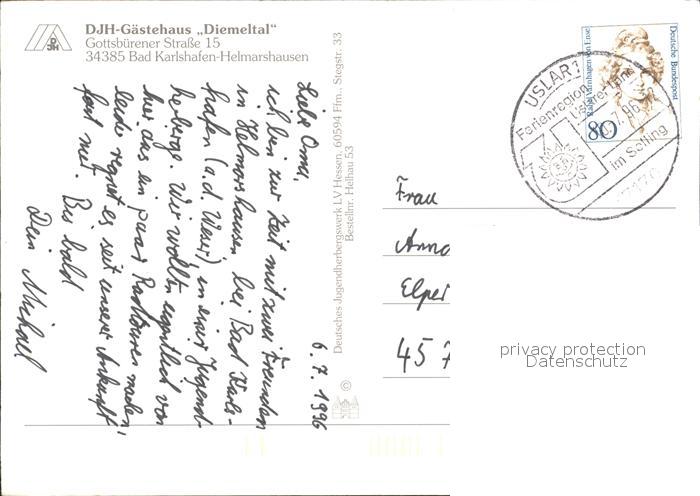 DJH-Gästehaus „Diemeltal“
Gottsbürener Straße 15
34385 Bad Karlshafen-Helmarshausen
DJH
6.7.1996
Liebe Oma,
ich bin zur Zeit mit zwei Freunden
in Helmarshausen bei Bad Karls-
hafen (a.d. Weser) in einer Jugend-
herberge. Wir wollten eigentlich von
hier aus ein paar Radtouren machen,
leider regnet es seit unserer Ankunft
fast nur. Bis bald
Dein Michael
Deutsches Jugendherbergswerk LV Hessen, 60594 Ffm., Stegstr. 33
Bestellnr. Helhau 53
©
Deutsche Bundespost
Rahel Varnhagen von Ense
80
USLAR 1
Ferienregion
Uslarer Land
.7.96
im Solling
37170
Frau
Anna
Elper
45 7
privacy protection
Datenschutz